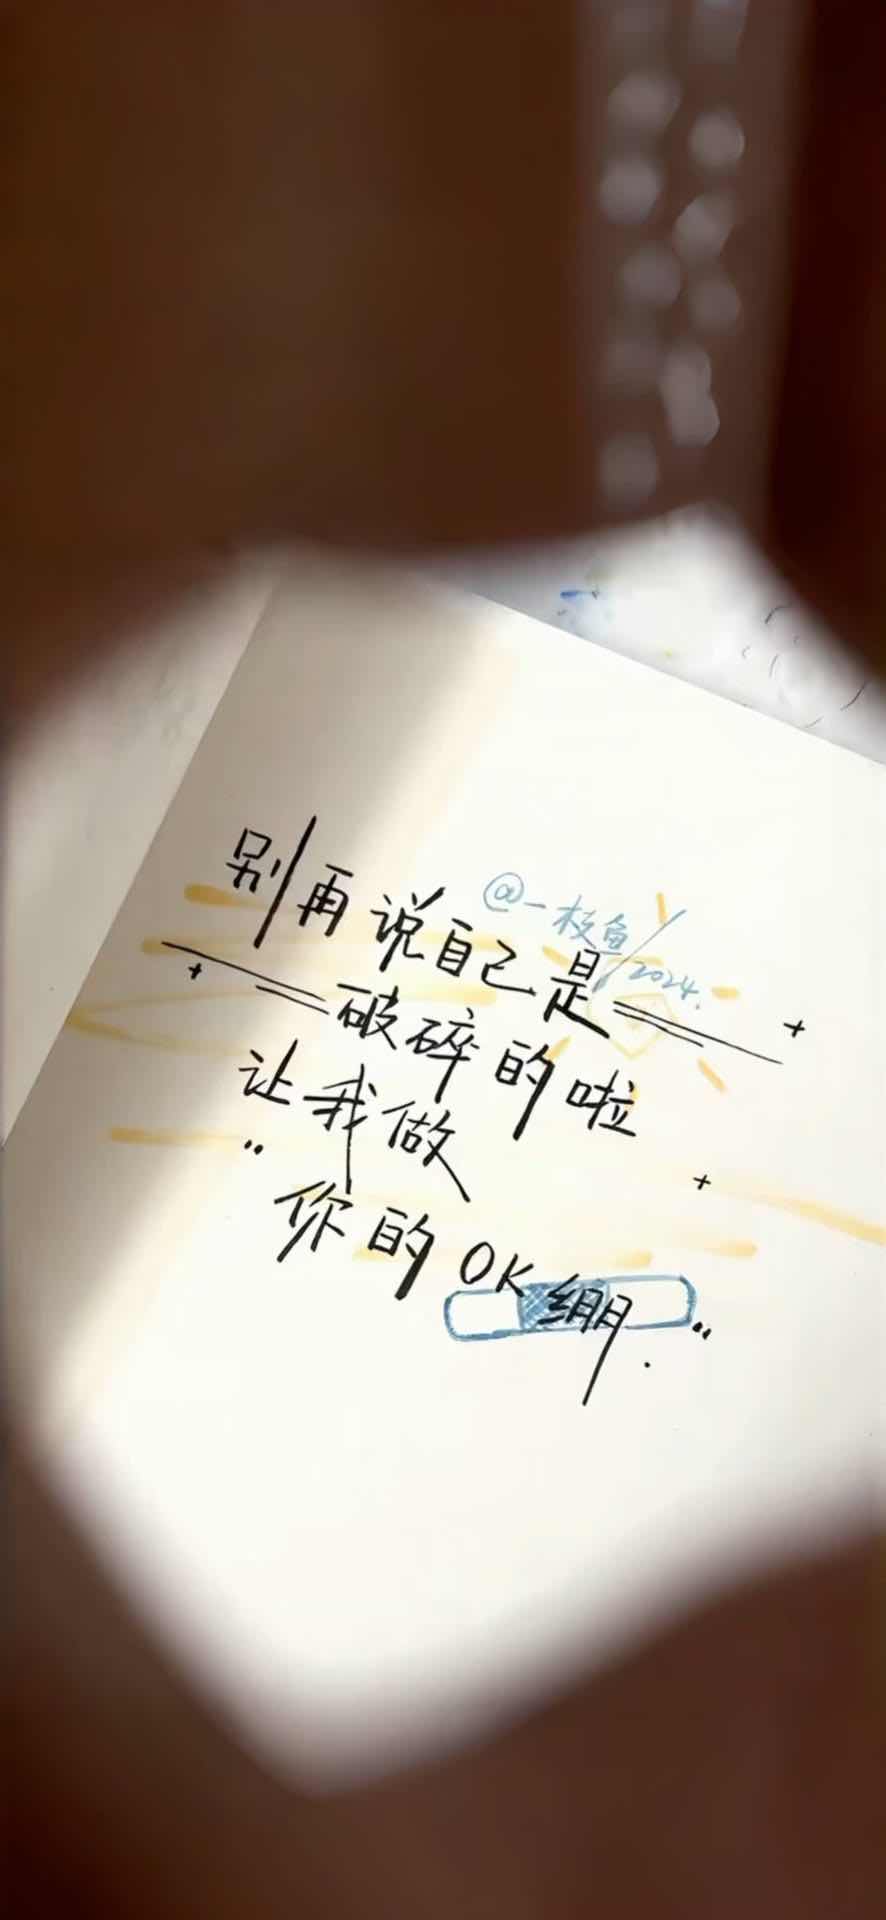 别再说自己是
破碎的啦
让我做
“你的OK绷.”
@一枝鱼
2024.